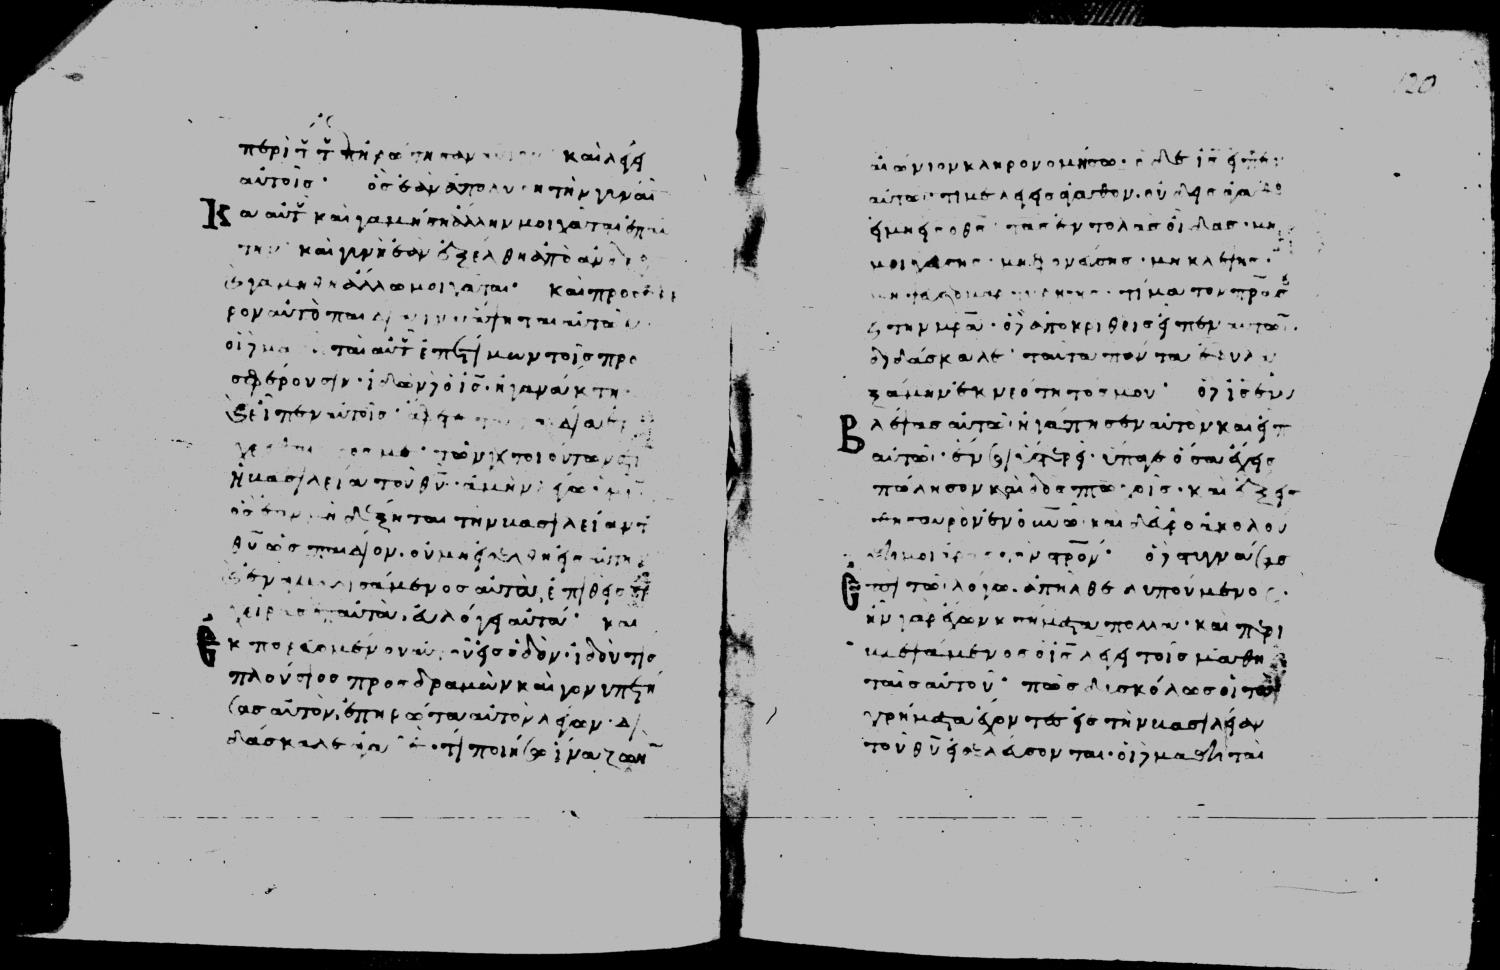 περὶ τ̆ τ̆ ἐπηρώτησαν καὶ λέγει
αὐτοῖς· ὃς ἐὰν ἀπολύσῃ τὴν γυναῖ
κα αὐτ̆ καὶ γαμήσῃ ἄλλην μοιχᾶται ἐπ αὐ
τήν· καὶ γυνὴ ἐὰν ἐξέλθῃ ἀπὸ ἀνδρὸς
ϗ γαμηθῇ ἄλλω μοιχᾶται· καὶ προσέφε
ρον αὐτῶ παιδία ἵνα ἅψηται αὐτῶν
οἱ δ μαθηταὶ αὐτ̆ ἐπετίμων τοῖς προ
σφέρουσιν· ἰδὼν δ ὁ ις̅ ἠγανάκτη
ϗ εἶπεν αὐτοῖς· ἄφετε τὰ παιδία
με· τῶν γ τοιούτων ἐστὶ
ἡ βασιλεία τοῦ θυ̅· ἀμὴν λέγω ὑμῖ
ὃς ἐὰν μὴ δέξηται τὴν βασιλείαν τ̆
θυ̅ ὡς παιδίον. οὐ μὴ εἰσέλθῃ εἰς αὐτήν
ϗ ἐναγκαλισάμενος αὐτὰ, ἐπιθεὶς τὰς
χεῖρας ἐπ αὐτὰ, εὐλόγει αὐτά· καὶ
ἐκπορευομένου αὐτοῦ εἰς ὁδὸν· ἰδού τις
πλούσιος προσδραμὼν καὶ γονυπετή
σας αὐτὸν, ἐπηρώτα αὐτὸν λέγων· δι
δάσκαλε ἀγαθέ· τί ποιήσω ἵνα ζωὴν
αἰώνιον κληρονομήσω· ὁ δὲ ις̅ εἶπεν
αὐτῶ· τί με λέγεις ἀγαθον· οὐδεὶς ἀγαθὸς
εἰ μὴ εἷς ὁ θς̅· τὰς ἐντολὰς οἶδας· μὴ
μοιχεύσῃς· μὴ φονεύσῃς· μὴ κλέψῃς·
μὴ ψευδομαρτυρήσῃς· τίμα τὸν πρ̅α σ̆
ϗ τὴν μρ̅α· ὁ δ ἀποκριθεὶς εἶπεν αὐτῶ·
διδάσκαλε· ταῦτα πάντα ἐφυλα
ξάμην ἐκ νεότητός μου· ὁ δ ις̅ ἐμ
βλέψας αὐτῶ· ἠγάπησεν αὐτὸν καὶ εἶπ
αὐτῶ· ἕν σε ὑστερεῖ· ὕπαγε ὅσα ἔχεις
πώλησον καὶ δὸς πτωχοῖς· καὶ ἕξεις
θησαυρὸν ἐν οὐνω̅· καὶ δεῦρο ἀκολού
θει μοι ἄρας τὸν στρον̅· ὁ δ στυγνάσας
ἐπὶ τῶ λόγω. ἀπῆλθε λυπούμενος.
ἦν γὰρ ἔχων κτήματα πολλά· καὶ περι
βλεψάμενος ὁ ις̅ λέγει τοῖς μαθη
ταῖς αὐτοῦ· πῶς δυσκόλως οἱ τὰ
χρήματα ἔχοντες εἰς τὴν βασιλείαν
τοῦ θυ̅ εἰσελεύσονται· οἱ δ μαθηταὶ